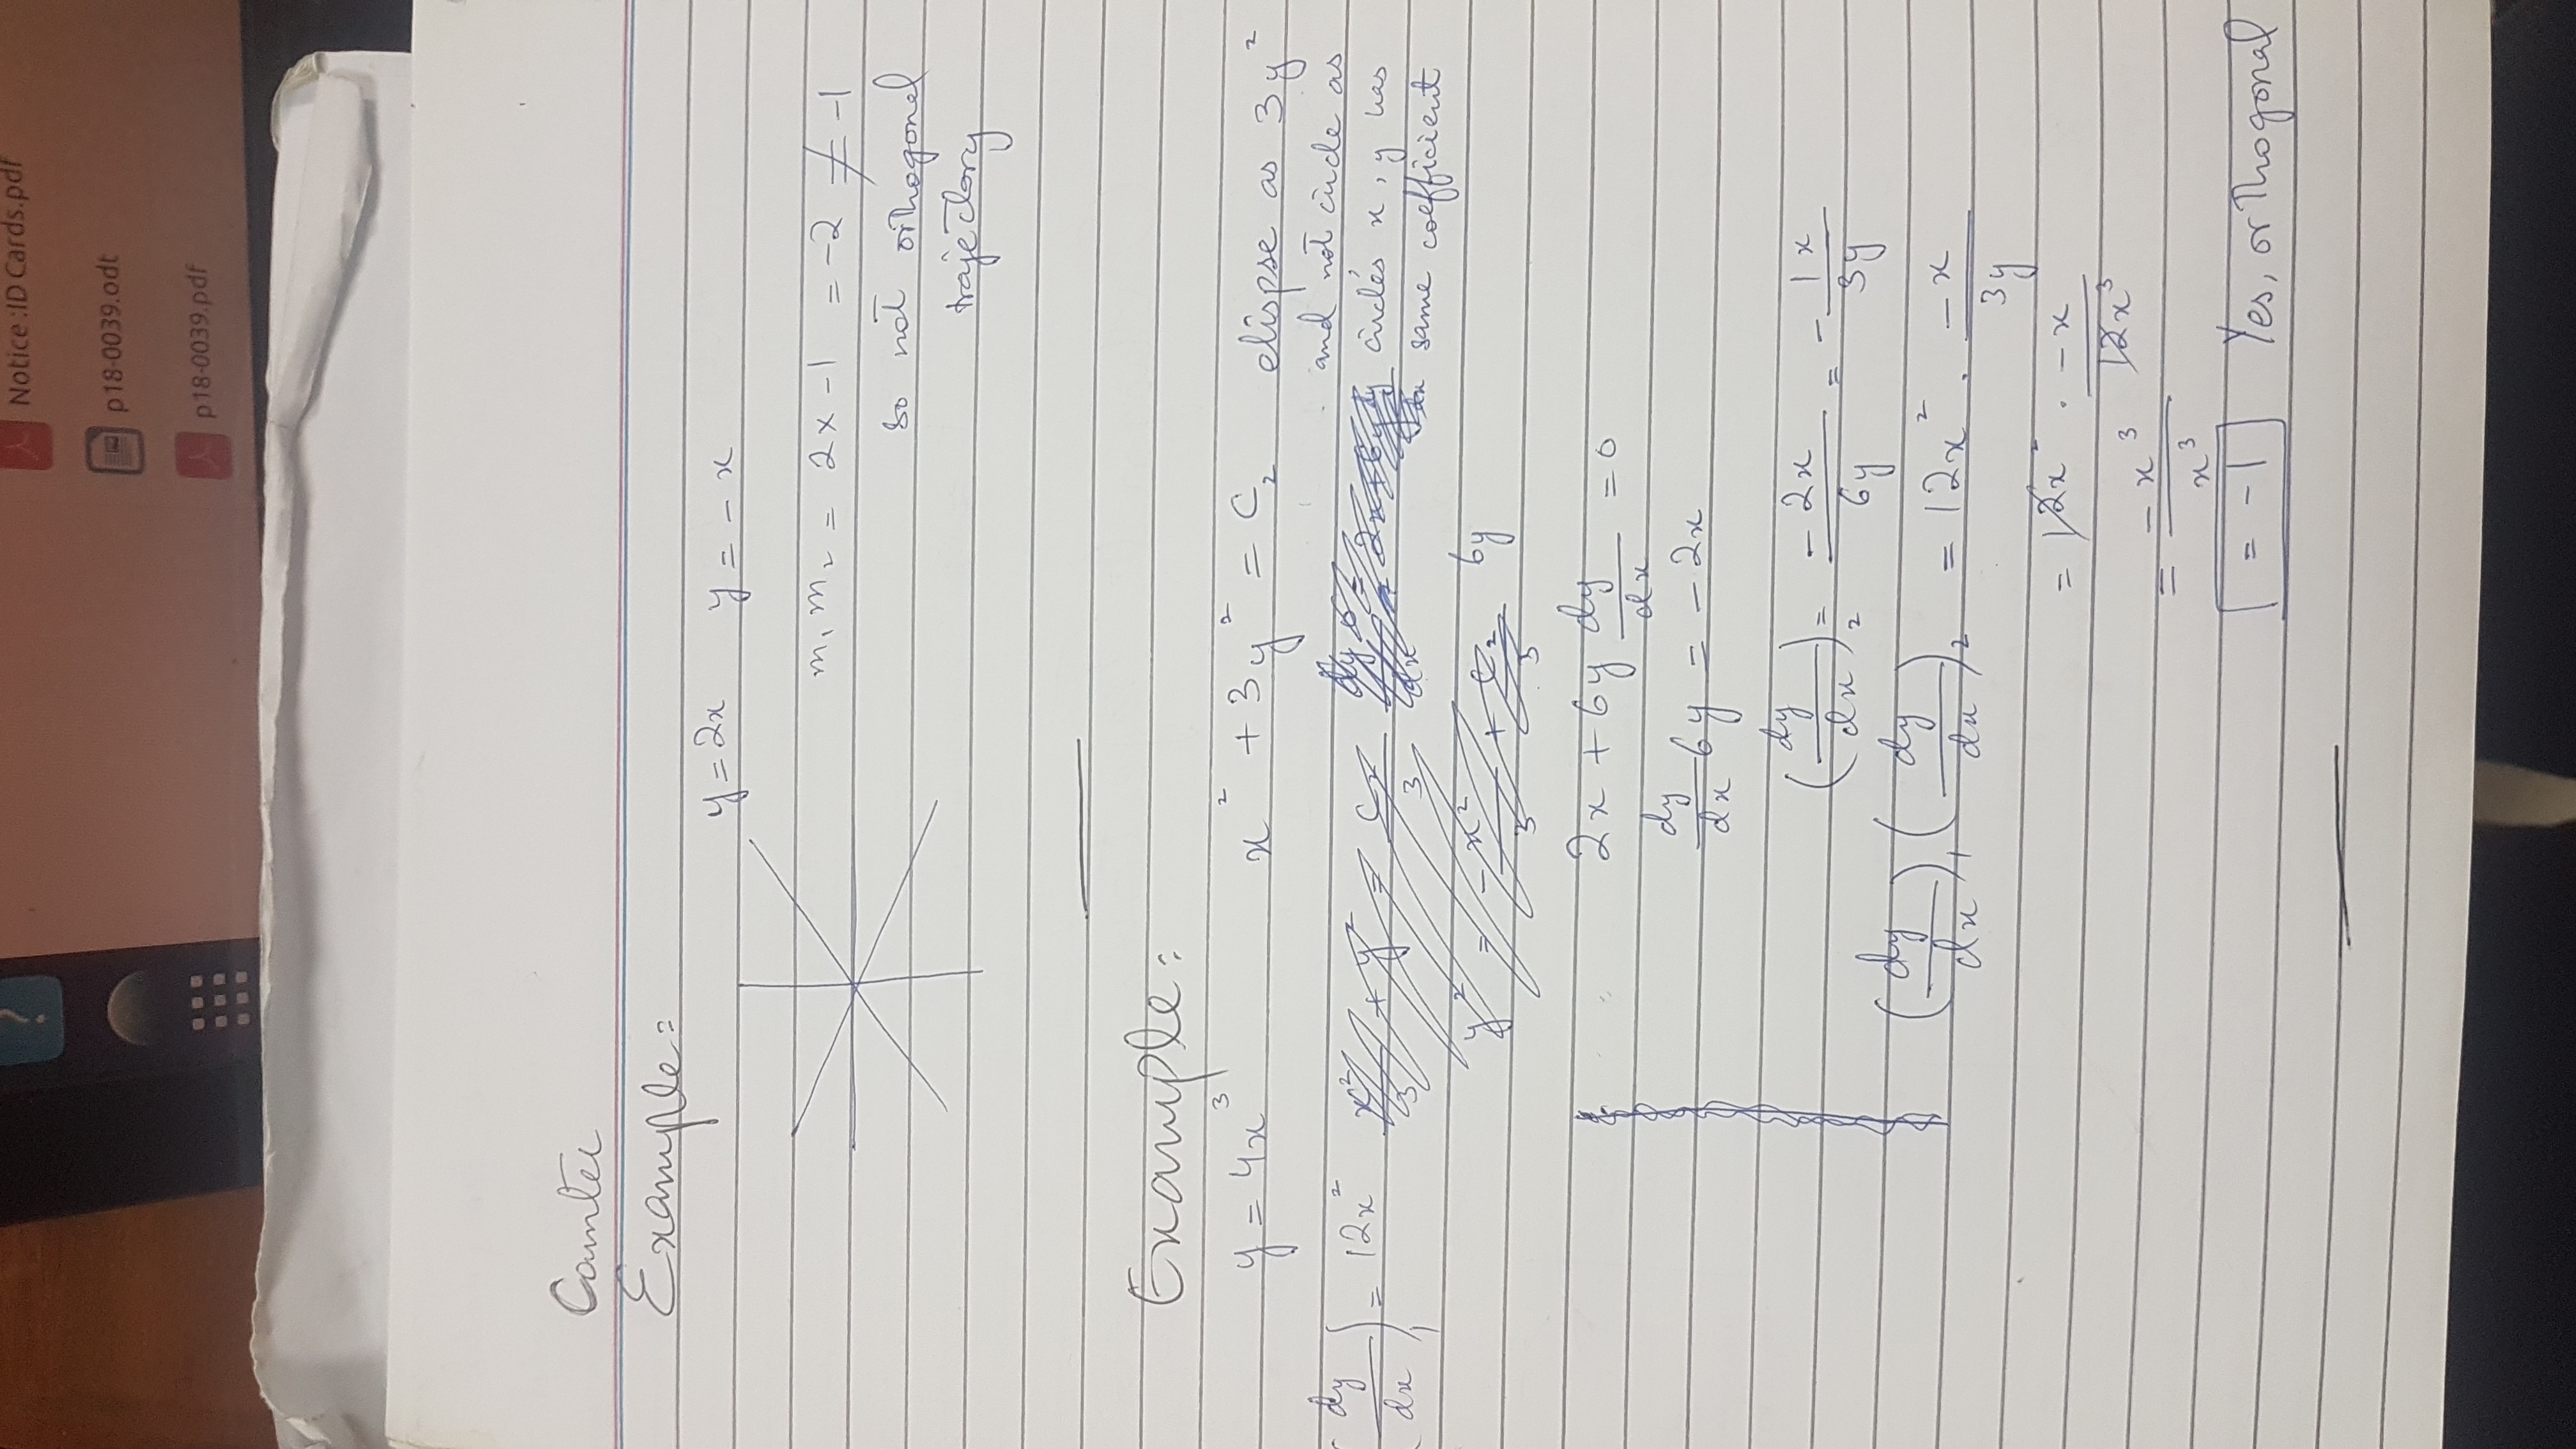 ?
Notice :ID Cards.pdf
p18-0039.odt
p18-0039.pdf
Counter
Example:
y = 2x y = - x
m₁ m₂ = 2x -1 = -2 ≠ -1
so not orthogonal
trajectory
Example:
y = 4x³ x² + 3y² = C₂ elispse as 3y²
and not circle as
(dy/dx)₁ = 12x² circles x, y has
same coefficient
6y
2x + 6y dy/dx = 0
dy/dx 6y = - 2x
(dy/dx)₂ = -2x/6y = - 1x/3y
(dy/dx)₁ (dy/dx)₂ = 12x² . -x/3y
= 12x² . -x/12x³
= -x³/x³
= -1 Yes, orthogonal